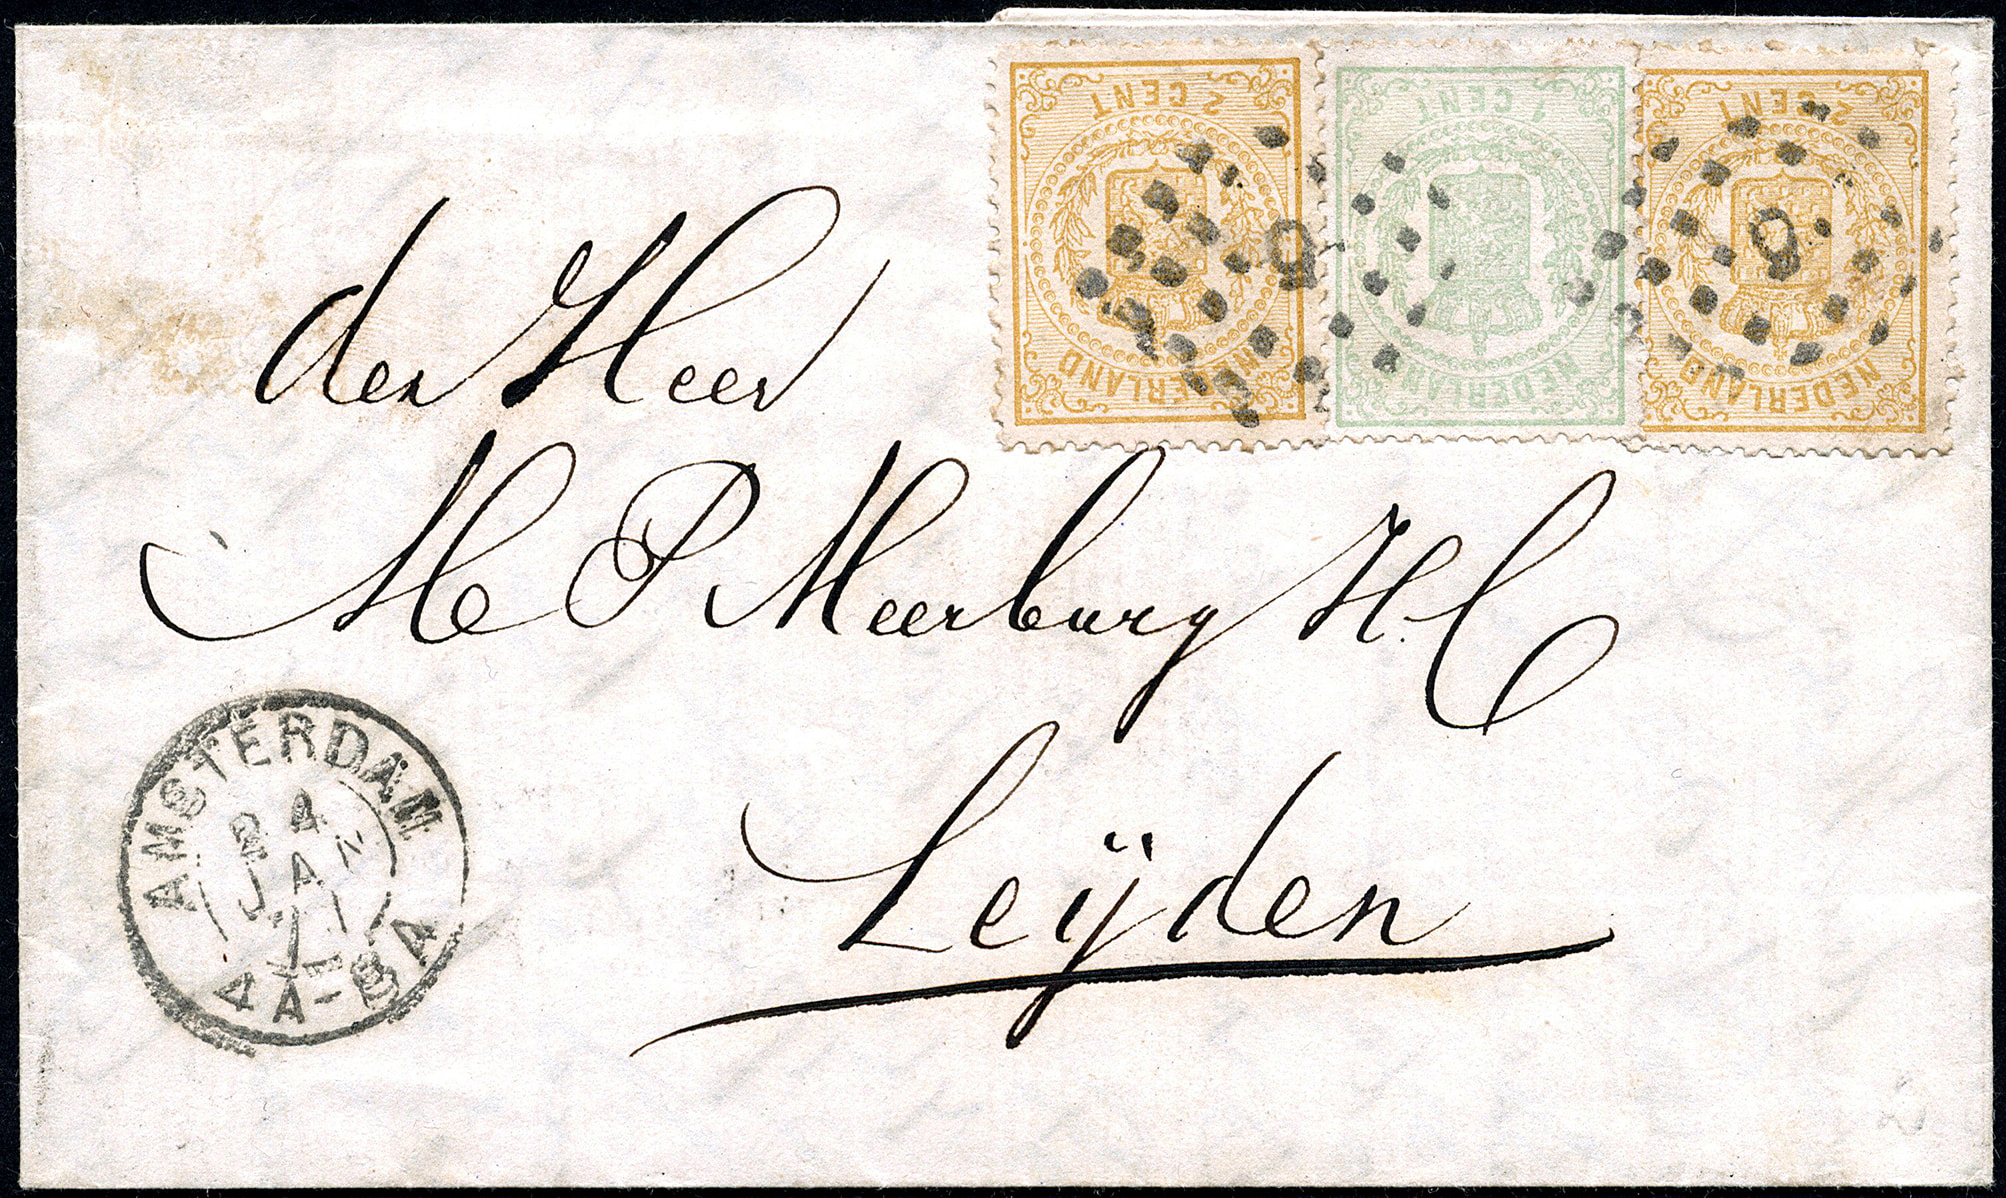 2 CENT
NEDERLAND
1 CENT
NEDERLAND
2 CENT
NEDERLAND
5
5
der Heer
M P Meerburg H.C
Leÿden
AMSTERDAM
24
JAN
71